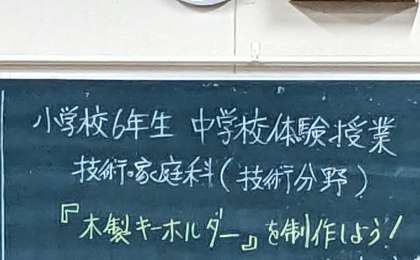 小学校6年生 中学校体験授業
技術・家庭科(技術分野)
『木製キーホルダー』を制作しよう!